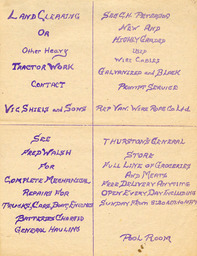 Land Clearing
Or
Other Heavy
Tractor Work
Contact
Vic Shiels and Sons
See G.H. Peterson
New And
Highly Graded
Used
Wire Cables
Galvanized and Black
Prompt Service
Rep Van. Wire Rope Co. Ltd.
See
Fred Walsh
For
Complete Mechanical
Repairs For
Trucks, Cars, Boat, Engines
Batteries Charged
General Hauling
Thurston's General
Store
Full Line of Groceries
And Meats
Free Delivery Anytime
Open Every Day Including
Sunday From 8:30 AM to 10 PM
Pool Room